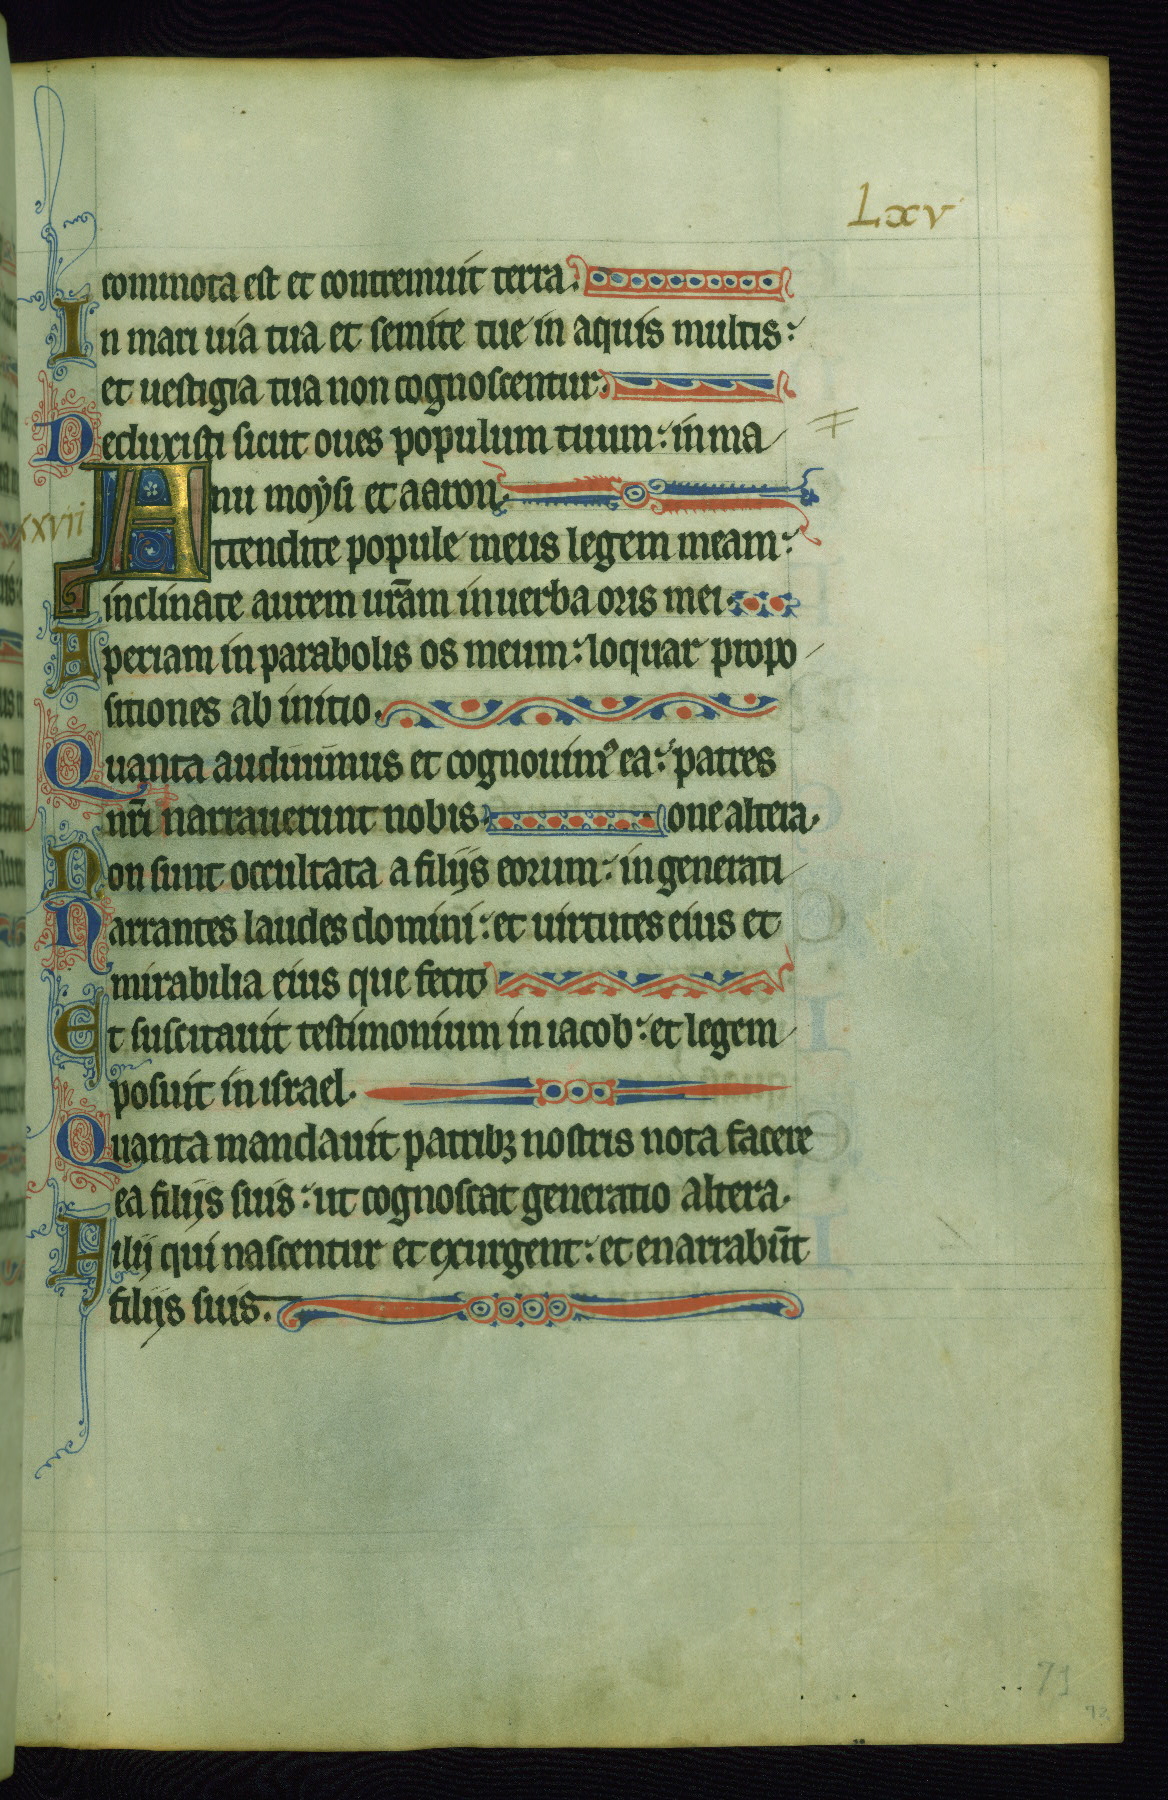 Lxv
commota est et contremuit terra.
In mari uia tua et semite tue in aquis multis:
et uestigia tua non cognoscentur.
Deduxisti sicut oues populum tuum: in ma
nu moysi et aaron.
xxvii
Attendite popule meus legem meam:
inclinate aurem urãm in uerba oris mei.
Aperiam in parabolis os meum: loquar propo
sitiones ab initio.
Quanta audiuimus et cognouimꝰ ea: patres
nr̃i narrauerunt nobis. one altera.
Non sunt occultata a filijs eorum: in generati
Narrantes laudes domini: et uirtutes eius et
mirabilia eius que fecit
Et suscitauit testimonium in iacob: et legem
posuit in israel.
Quanta mandauit patribꝫ nostris nota facere
ea filijs suis: ut cognoscat generatio altera.
Filij qui nascentur et exurgent: et enarrabũt
filijs suis.